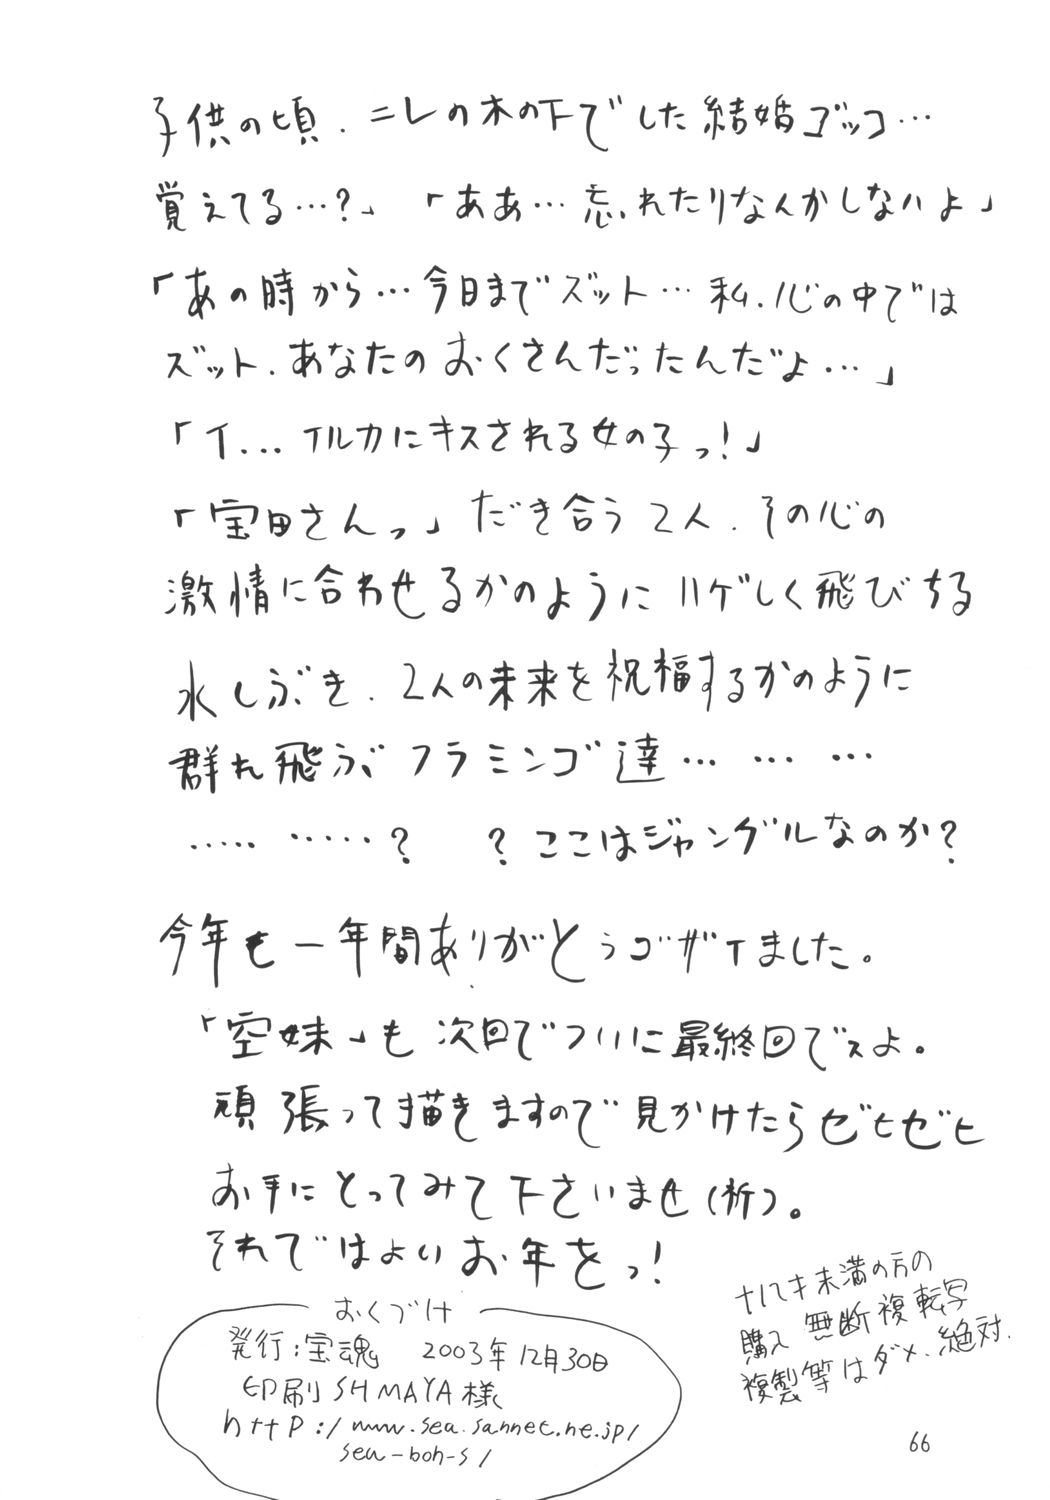 子供の頃、ニレの木の下でした結婚ゴッコ…
覚えてる…?」「ああ…忘れたりなんかしないよ」
「あの時から…今日までズット…私、心の中では
ズット、あなたのおくさんだったんだよ…」
「イ...イルカにキスされる女の子っ!」
「宝田さんっ」だき合う2人、その心の
激情に合わせるかのようにハゲしく飛びちる
水しぶき、2人の未来を祝福するかのように
群れ飛ぶフラミンゴ達… … …
…‥ …‥? ?ここはジャングルなのか?
今年も一年間ありがとうゴザイました。
「空妹」も次回でついに最終回でスよ。
頑張って描きますので見かけたらゼヒゼヒ
お手にとってみて下さいませ(祈)。
それではよいお年をっ!
おくづけ
発行:宝魂 2003年12月30日
印刷 SHMAYA様
http:/www.sea.sannet.ne.jp/
sea-boh-s/
十八才未満の方の
購入 無断複転写
複製等はダメ、絶対、
66